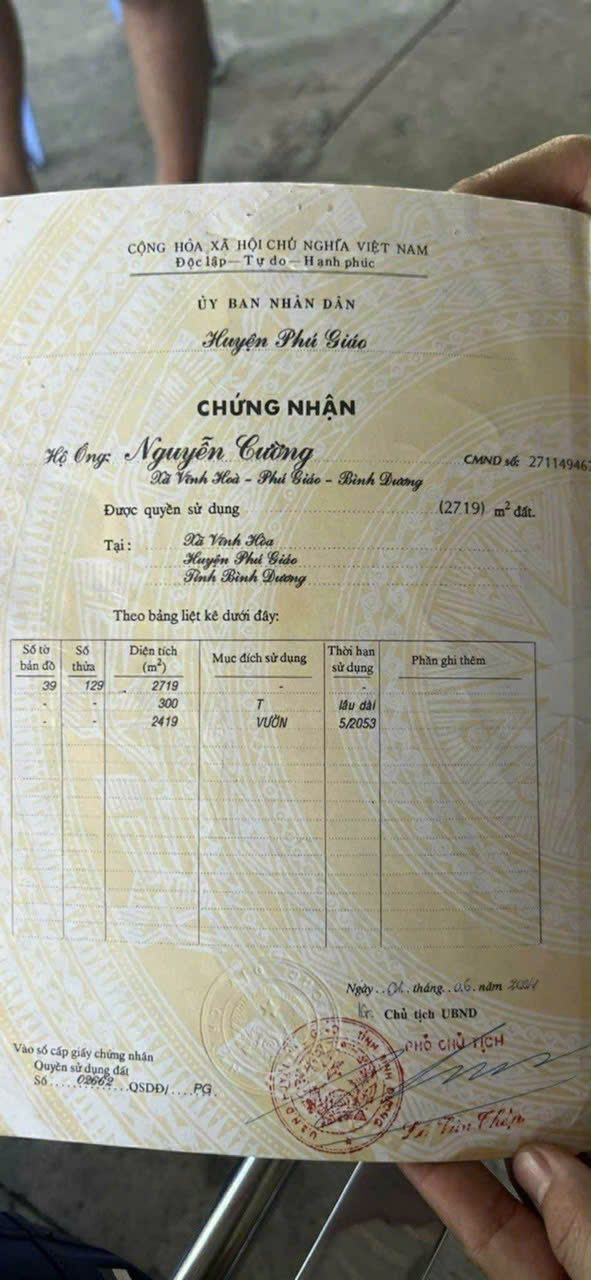 CỘNG HÒA XÃ HỘI CHỦ NGHĨA VIỆT NAM
Độc lập — Tự do — Hạnh phúc
ỦY BAN NHÂN DÂN
Huyện Phú Giáo
CHỨNG NHẬN
Hộ Ông: Nguyễn Cường CMND số: 271149467
Xã Vĩnh Hoà - Phú Giáo - Bình Dương
Được quyền sử dụng (2719) m² đất.
Tại : Xã Vĩnh Hòa
Huyện Phú Giáo
Tỉnh Bình Dương
Theo bảng liệt kê dưới đây:
Số tờ bản đồ Số thửa Diện tích (m²) Mục đích sử dụng Thời hạn sử dụng Phần ghi thêm
39 129 2719 - -
- - 300 T lâu dài
- - 2419 VƯỜN 5/2053
Ngày 01 tháng 06 năm
Chủ tịch UBND
PHÓ CHỦ TỊCH
Vào sổ cấp giấy chứng nhận
Quyền sử dụng đất
Số 02662 QSDĐ/ PG.